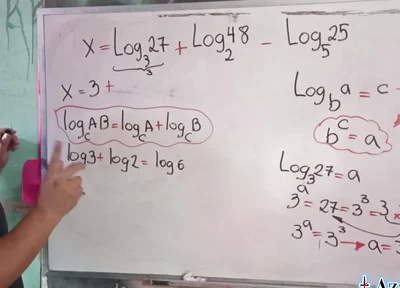 x = Log₃27 + Log₂48 − Log₅25
3
x = 3 +
log_C AB = log_C A + log_C B
log3 + log2 = log6
Log_b a = c
b^c = a
Log₃27 = a
3^a = 27 = 3³ = 3 ×
3^a = 3³ → a = 3